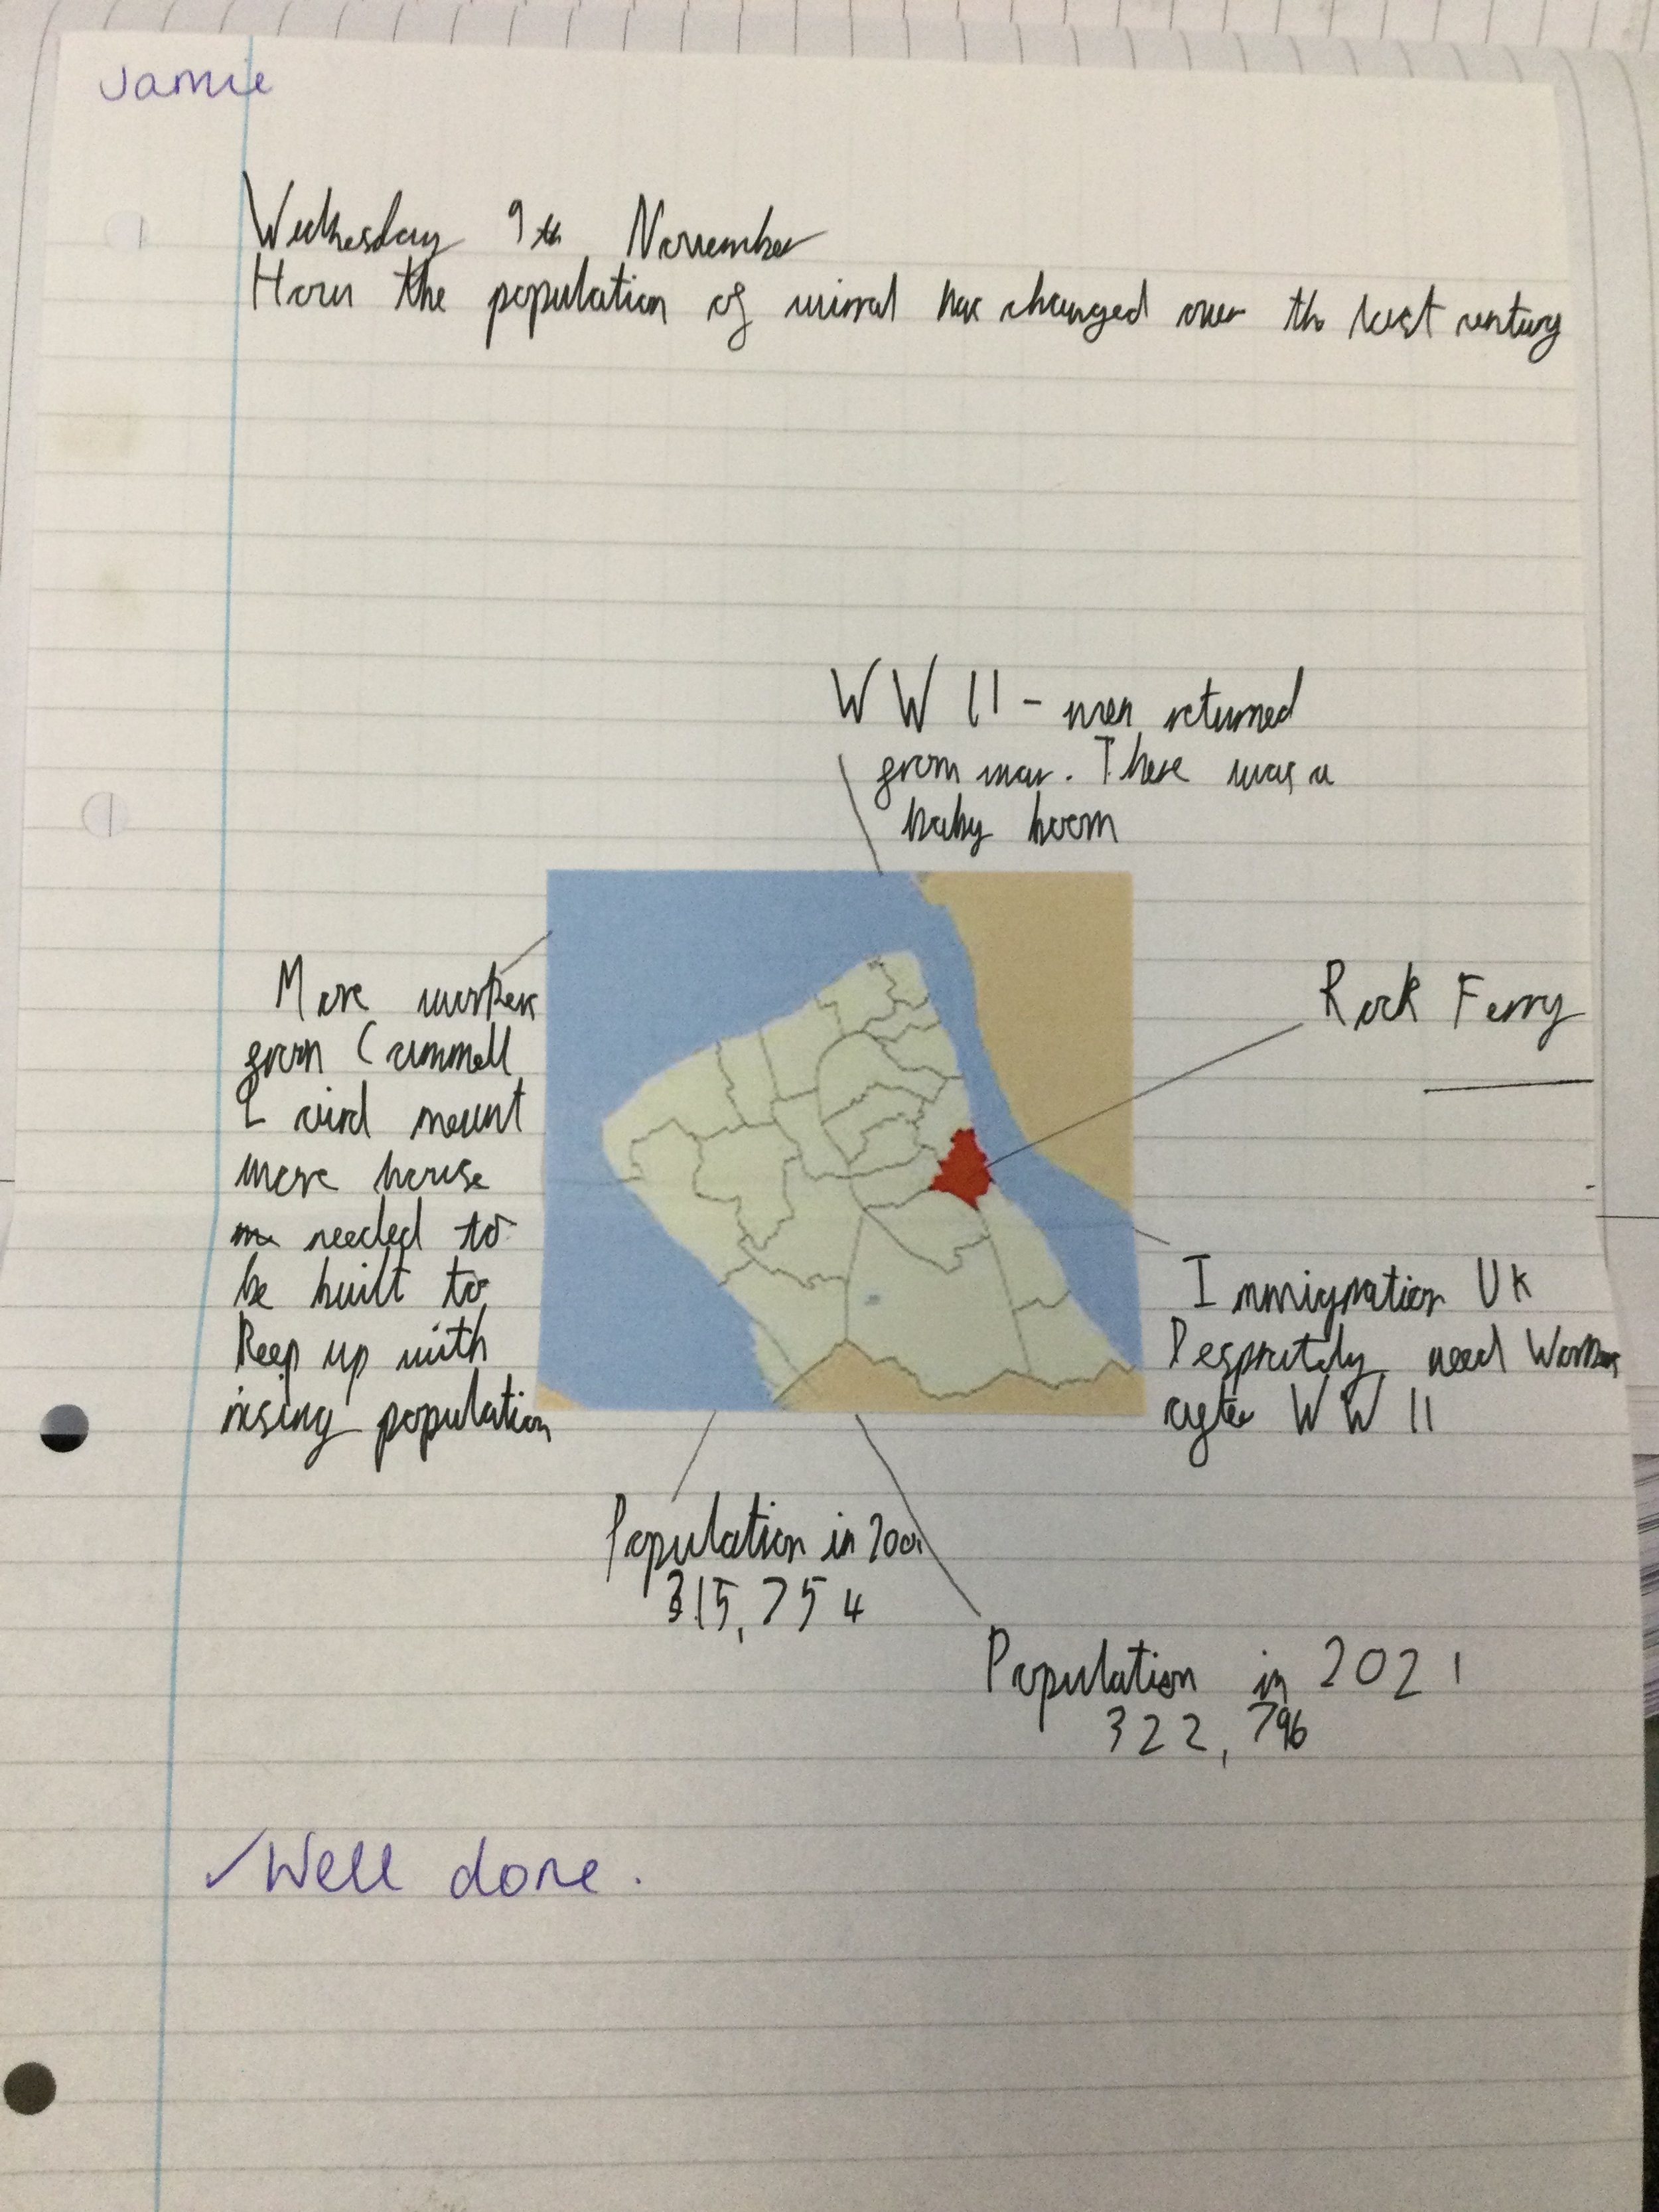 Jamie
Wednesday 9th November
How the population of wirral has changed over the last century
WW II - men returned
from war. There was a
baby boom
More workers
from Cammell
Laird meant
more house
needed to
be built to
keep up with
rising population
Rock Ferry
Immigration UK
Despratly need
after WW II
Population in 2001
315,754
Population in 2021
322,796
✓Well done.